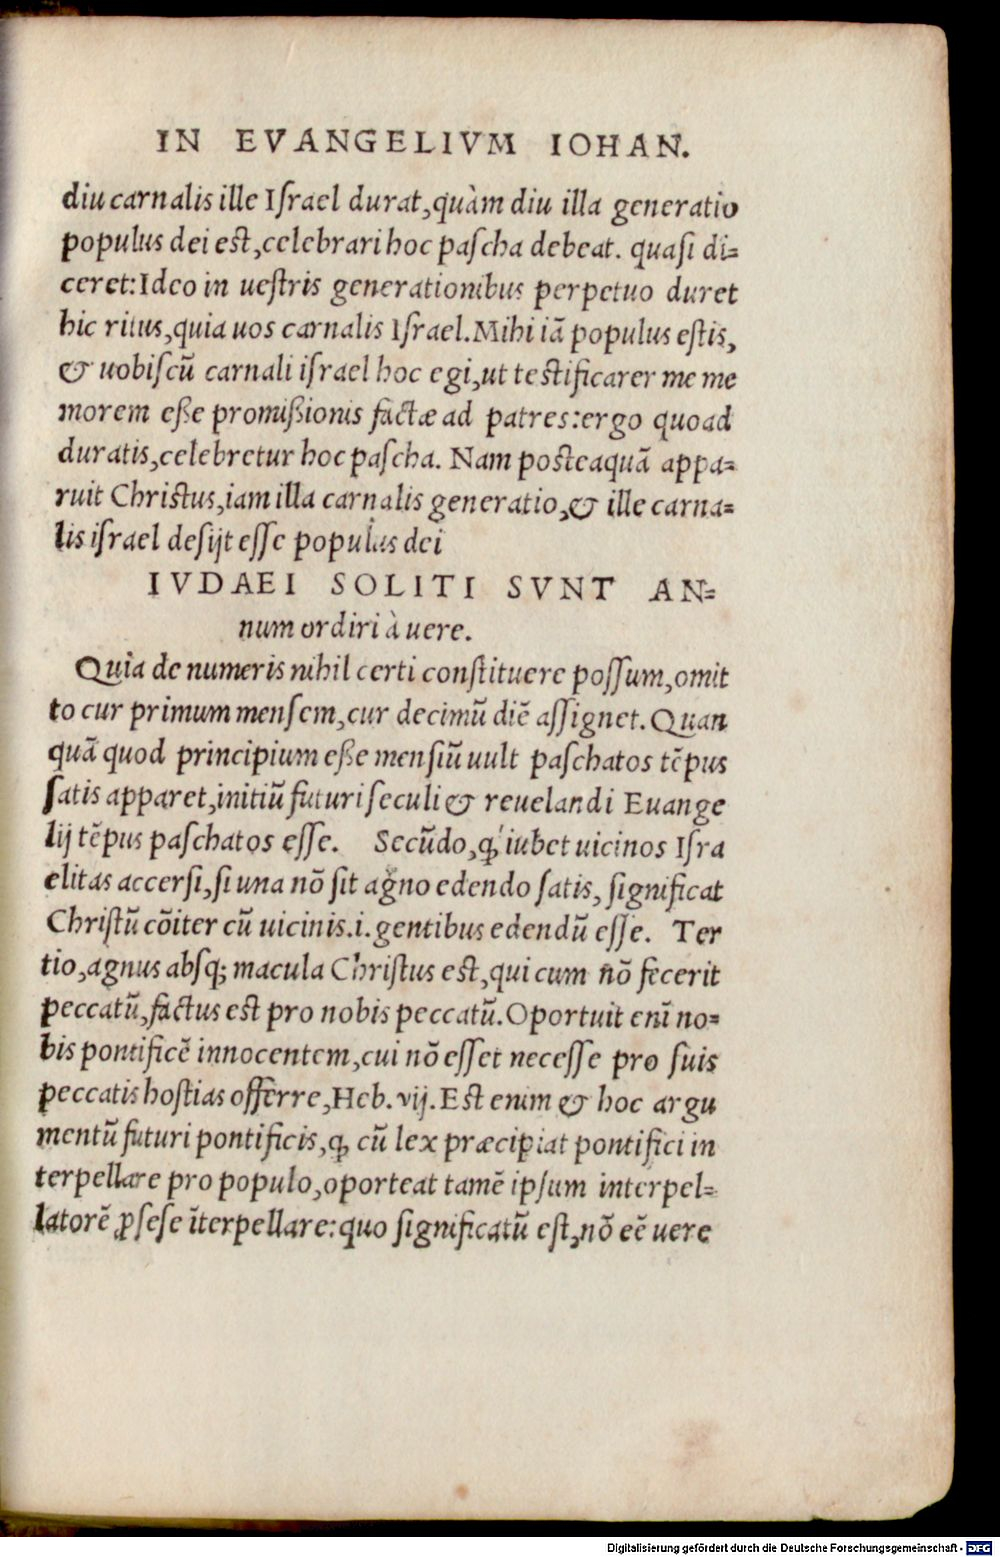 IN EVANGELIVM IOHAN.
diu carnalis ille Iſrael durat,quàm diu illa generatio
populus dei est,celebrari hoc paſcha debeat. quaſi di=
ceret:Ideo in ueſtris generationibus perpetuo duret
hic ritus,quia uos carnalis Iſrael.Mihi iā populus eſtis,
& uobiſcū carnali iſrael hoc egi,ut teſtificarer me me
morem eße promißionis factæ ad patres:ergo quoad
duratis,celebretur hoc paſcha. Nam posteaquā appa=
ruit Chriſtus,iam illa carnalis generatio,& ille carna=
lis iſrael deſijt eſſe populus dei
IVDAEI SOLITI SVNT AN=
num ordiri à uere.
Quia de numeris nihil certi conſtituere poſſum,omit
to cur primum menſem,cur decimū diē aſſignet.Quan
quā quod principium eße menſiū uult paſchatos tēpus
ſatis apparet,initiū futuri ſeculi & reuelandi Euange
lij tēpus paſchatos eſſe. Secūdo,ꝙ iubet uicinos Iſra
elitas accerſi,ſi una nō ſit agno edendo ſatis, ſignificat
Chriſtū cōiter cū uicinis.i.gentibus edendū eſſe. Ter
tio,agnus abſq; macula Chriſtus est,qui cum nō fecerit
peccatū,factus est pro nobis peccatū.Oportuit enī no=
bis pontificē innocentem,cui nō eſſet neceſſe pro ſuis
peccatis hoſtias offerre,Heb.vij.Est enim & hoc argu
mentū futuri pontificis,ꝙ cū lex præcipiat pontifici in
terpellare pro populo,oporteat tamē ipſum interpel=
latorē ꝓ ſeſe īterpellare:quo ſignificatū eſt,nō eē uere
Digitalisierung gefördert durch die Deutsche Forschungsgemeinschaft - DFG